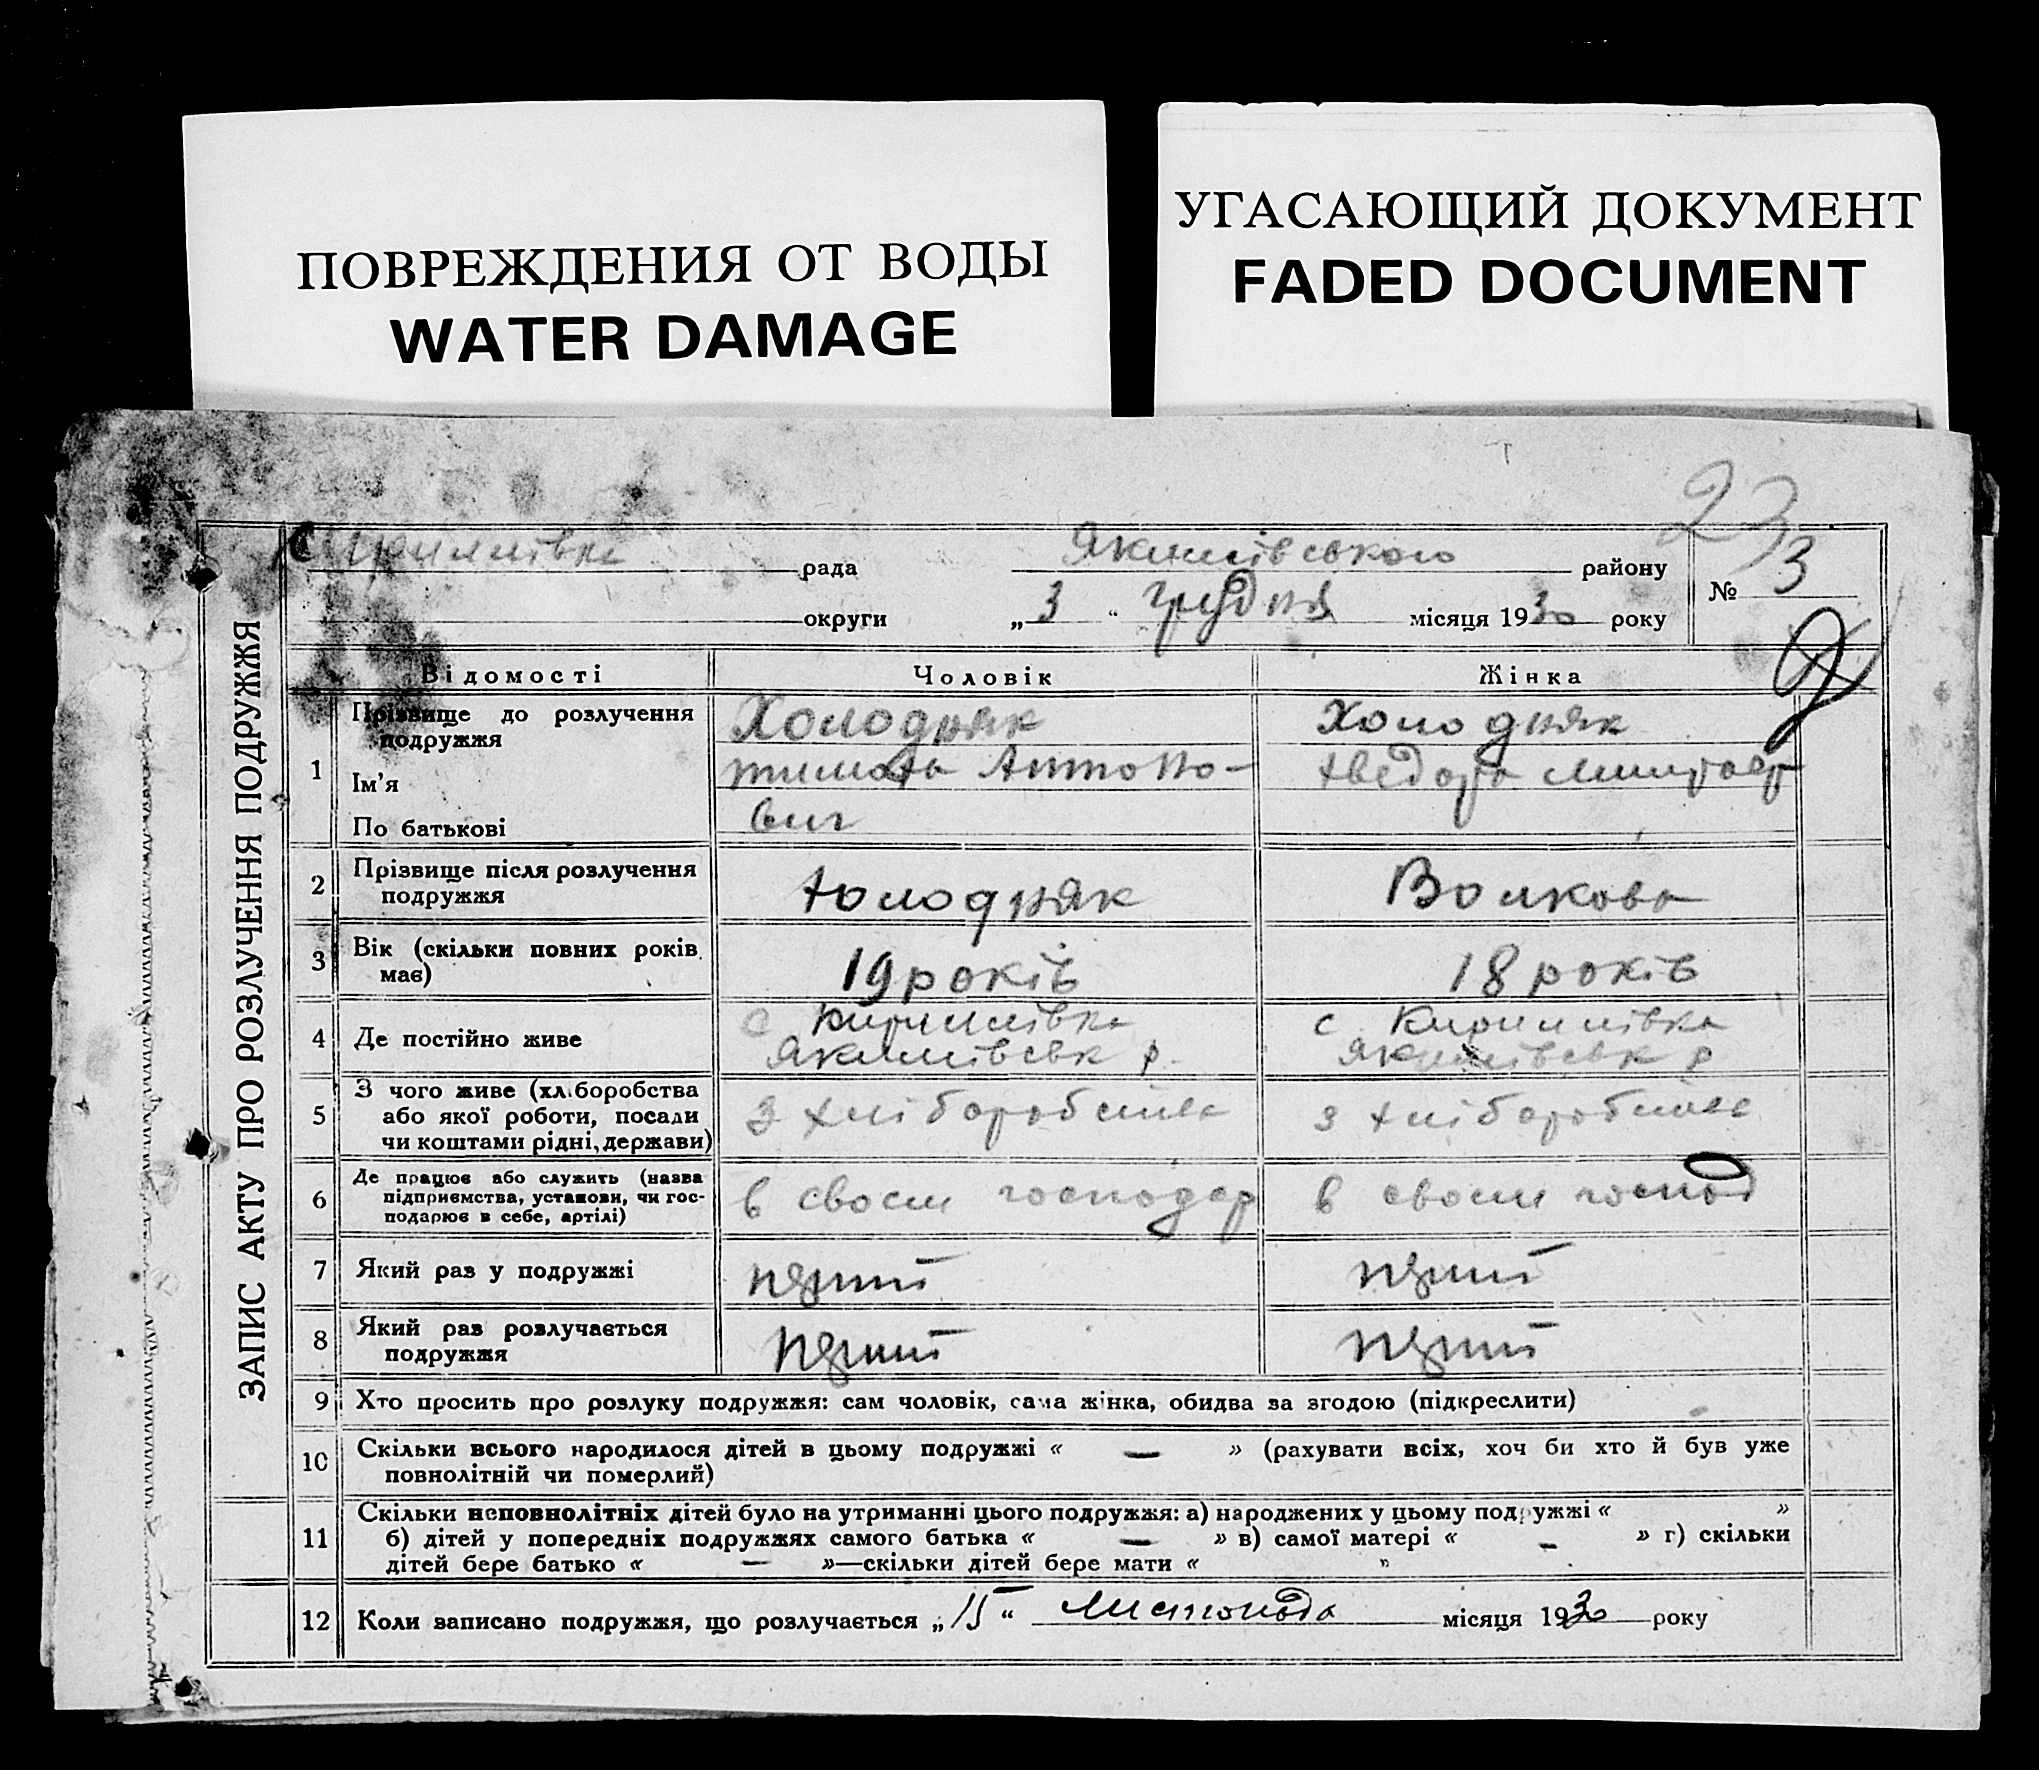 ПОВРЕЖДЕНИЯ ОТ ВОДЫ
WATER DAMAGE
УГАСАЮЩИЙ ДОКУМЕНТ
FADED DOCUMENT
23
ЗАПИС АКТУ ПРО РОЗЛУЧЕННЯ ПОДРУЖЖЯ
рада Якимівського району № 3
округи „ 3 “ грудня місяця 1930 року
Відомості Чоловік Жінка
1 Прізвище до розлучення подружжя Холодняк Холодняк
Ім’я Антоно- хведора
По батькові вич
2 Прізвище після розлучення подружжя холодняк Волкова
3 Вік (скільки повних років має) 19 років 18 років
4 Де постійно живе с Кирилівка с Кирилівка
Якимівськ р. Якимівськ р
5 З чого живе (хліборобства або якої роботи, посади чи коштами рідні, держави) З хліборобства з хліборобства
6 Де працює або служить (назва підприємства, установи, чи господарює в себе, артілі) в своєм господар в своєм господ
7 Який раз у подружжі
8 Який раз розлучається подружжя
9 Хто просить про розлуку подружжя: сам чоловік, сама жінка, обидва за згодою (підкреслити)
10 Скільки всього народилося дітей в цьому подружжі « — » (рахувати всіх, хоч би хто й був уже
повнолітній чи померлий)
11 Скільки неповнолітніх дітей було на утриманні цього подружжя: а) народжених у цьому подружжі « »
б) дітей у попередніх подружжях самого батька « — » в) самої матері « — » г) скільки
дітей бере батько « — »—скільки дітей бере мати « »
12 Коли записано подружжя, що розлучається „ 15 “ Листопада місяця 1930 року